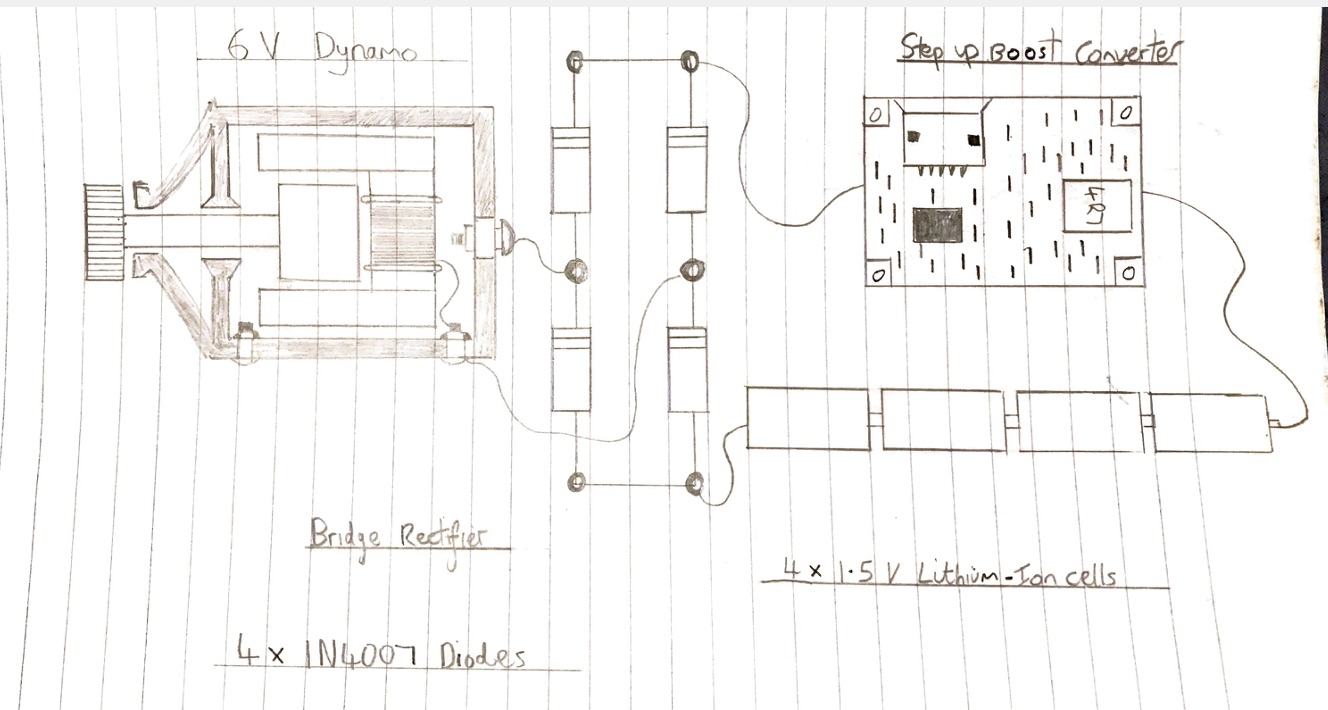 6 V Dynamo
Step up Boost Converter
4R7
Bridge Rectifier
4 x 1.5 V Lithium-Ion cells
4 x 1N4007 Diodes